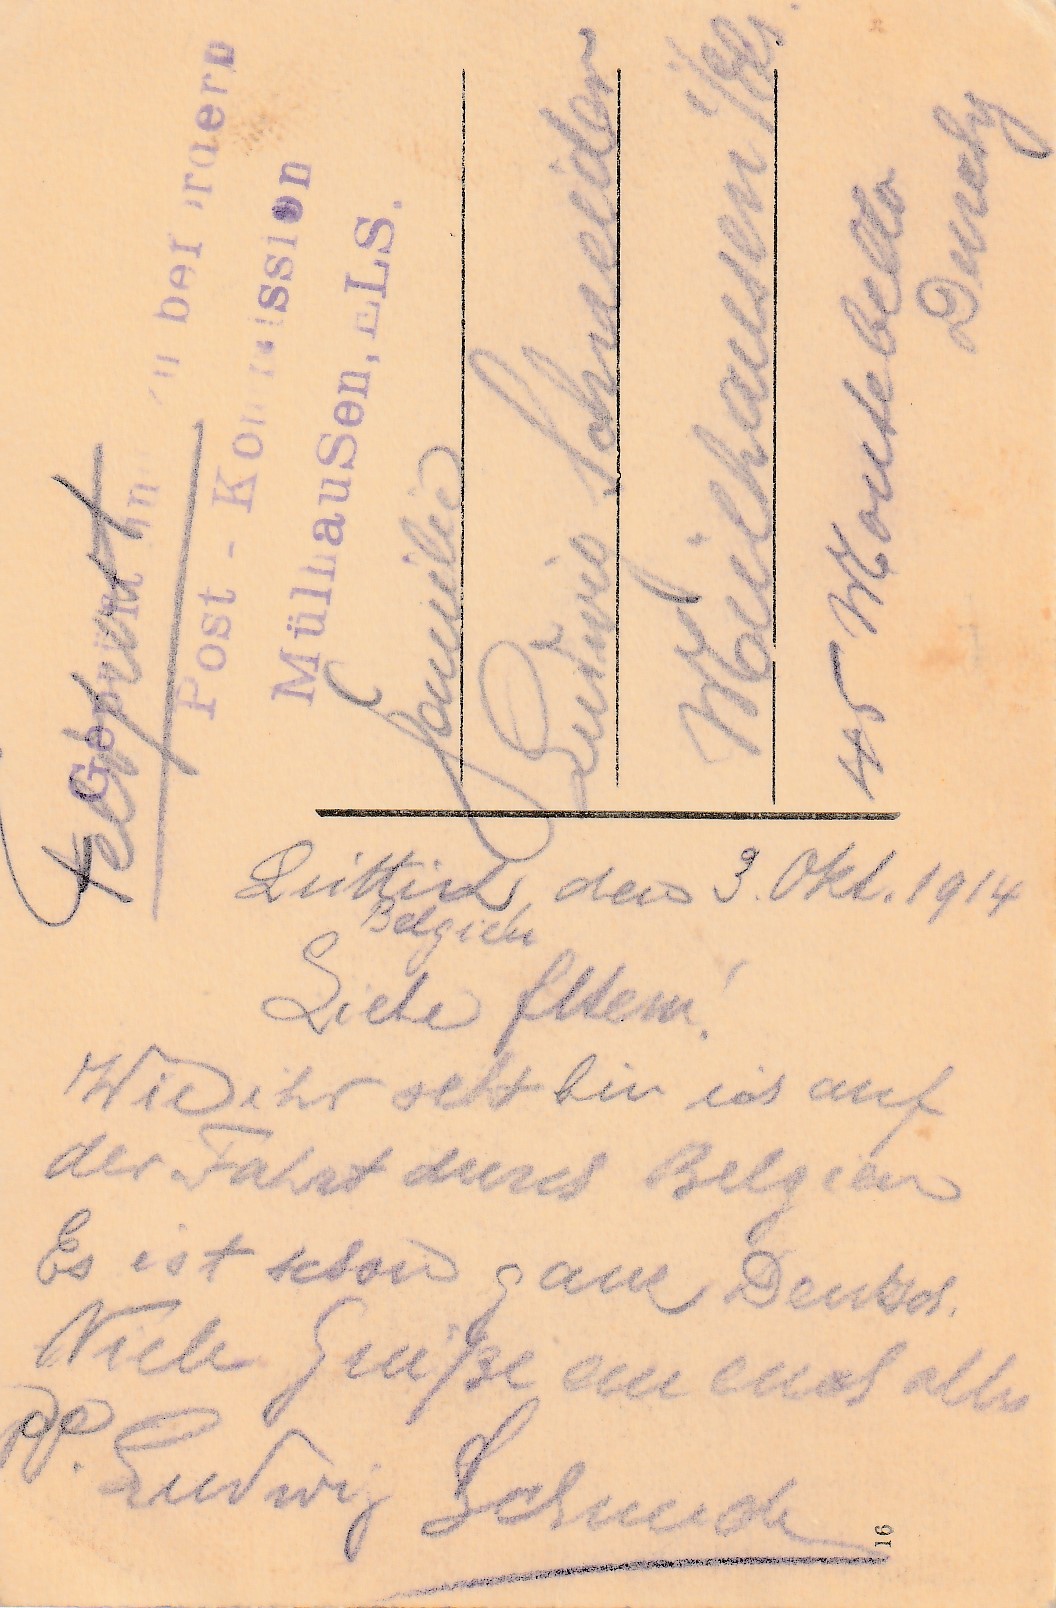 Geprüft und zu befördern
Post - Kommission
Mülhausen, ELS.
Feldpost
Familie
Ludwig Schneider
Mülhausen i/Els.
45 Montebello
Lüttich, den 3. Okt. 1914
Belgien
Liebe Eltern!
Wie ihr seht bin ich auf
der Fahrt durch Belgien
Es ist schon ganz Deutsch.
Viele Grüße an euch alle
Ludwig Schneider
16